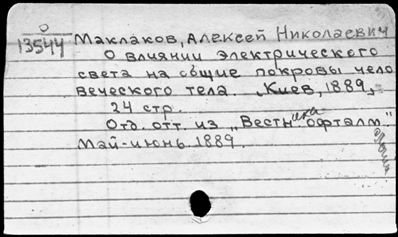 О
13544
Маклаков, Алексей Николаевич
О влиянии электрического
света на общие покровы чело
веческого тела. Киев, 1889,
24 стр.
Отд. отт. из „Вестника офталм."
Май-июнь 1889.